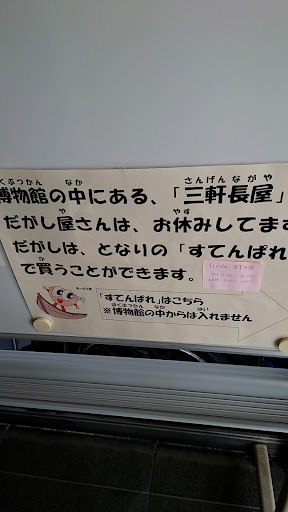 博物館の中にある、「三軒長屋」
だがし屋さんは、お休みしてます
だがしは、となりの「すてんばれ
で買うことができます。
「すてんばれ」はこちら
※博物館の中からは入れません